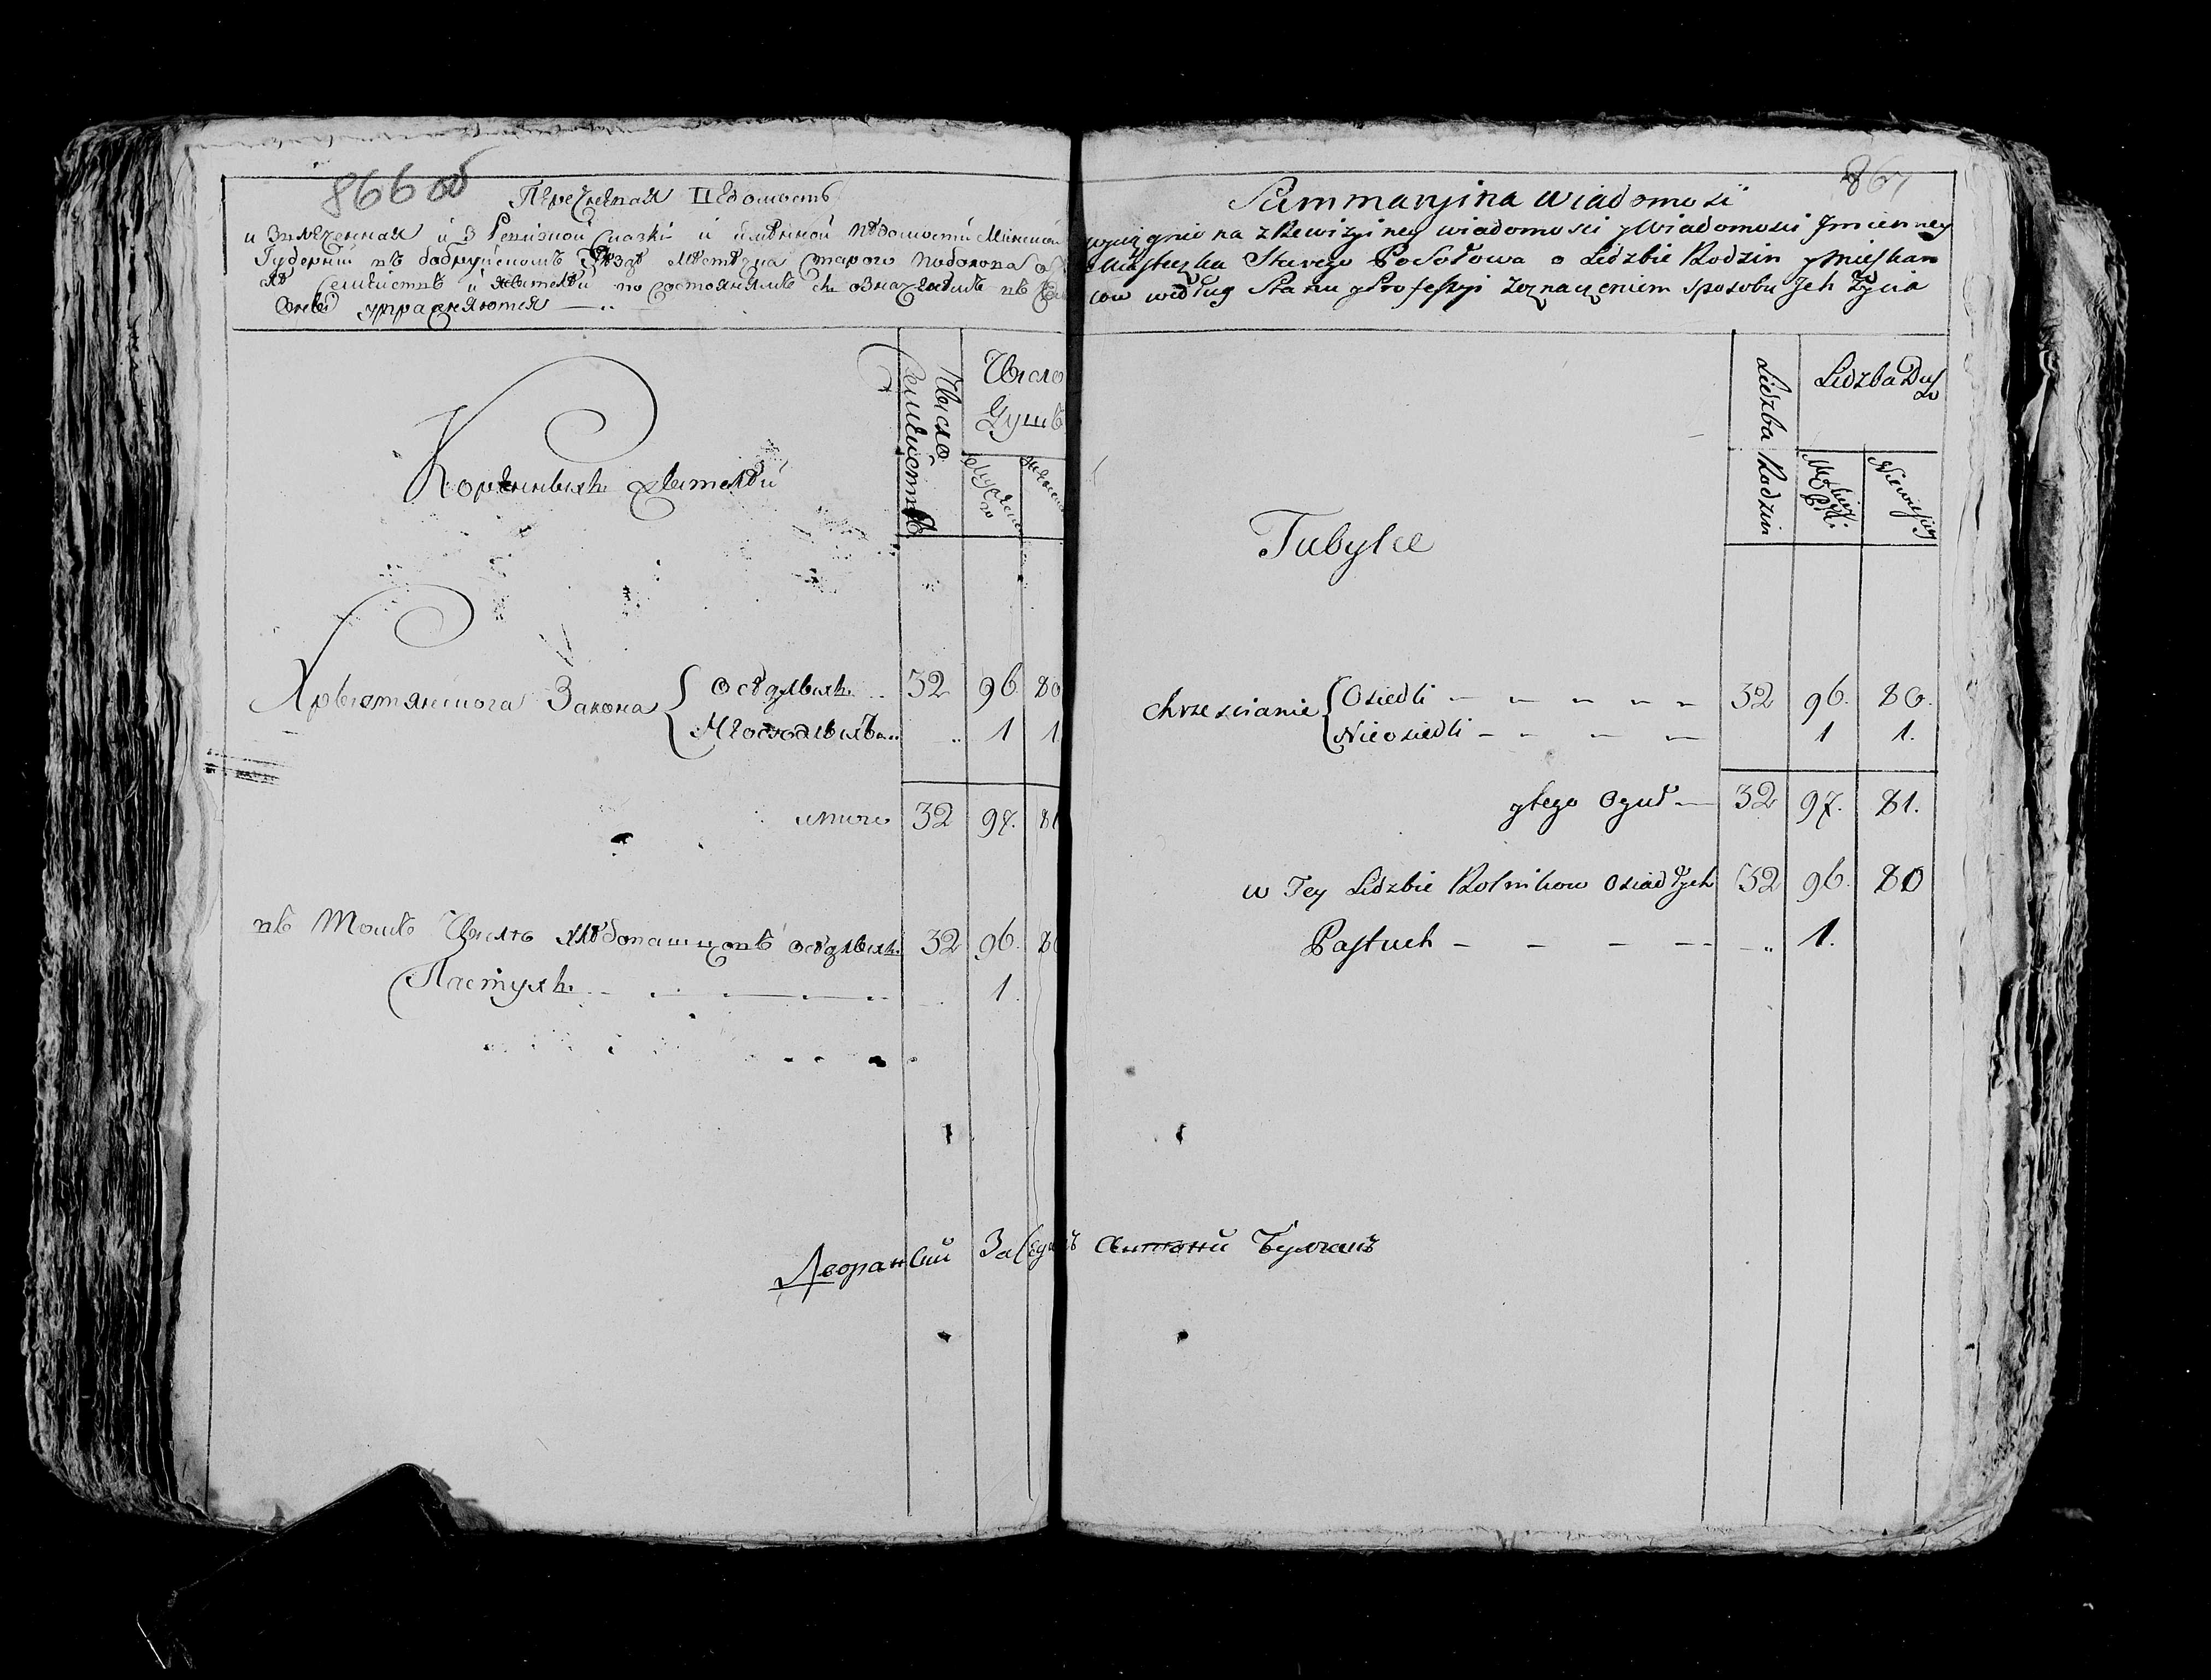 866 об
Перечневая Ведомость
и Звлеченная и З Ревизкой Сказки и имянной Ведомости Минской
Губернии въ бобруйскомъ Уезде местечка Старого
Семействъ и жителей по состояниямъ
упражняются
Число Семействъ
Число Душъ
Мужеска
женска
Коренныхъ жителей
Христянского Закона { оседлыхъ 32 96 80
Неоседлыхъ „ 1 1
итого 32 97. 81
въ Томъ Числе хлебопашцовъ оседлыхъ 32 96. 80
Пастухъ „ 1.
Дворанский Заседат Антони Булгакъ
867
Summaryina Wiadomosć
wyciągniona z Rewizyiney wiadomosci y Wiadomosci Jmienney
Miasteczka Starego Posołowa o Lidzbie Rodzin y Mieszkan
cow według Stanu y Profeſsyi zoznaczeniem sposobu Jch Życia
Lidzba Rodzin
Lidzba Dusz
Męskiey Płci
Niewieściey
Tubylce
chrzescianie { Osiedli 32 96. 80.
Nieosiedli 1 1.
y tego Oguł 32 97. 81.
w Tey Lidzbie Rolnikow Osiadłych 32 96. 80
Paſtuch „ 1.